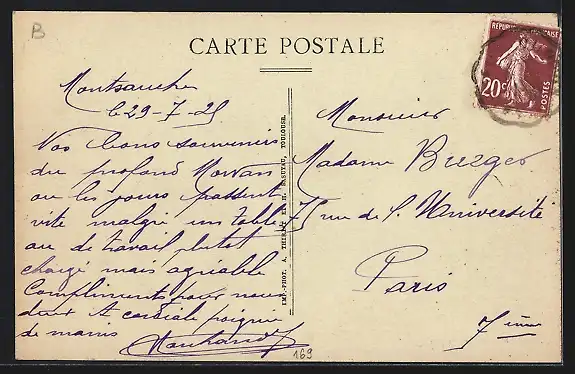 B
CARTE POSTALE
REPUBLIQUE FRANÇAISE
20c
POSTES
Montsauche
le 29-7-25
Nos bons souvenirs
du profond Morvan
ou les jours passent
vite malgré un table
au de travail plutot
chargé mais agréable
Compliments pour vous
deux et cordiale poignée
de mains
IMP.-PHOT. A. THIRIAT ET H. BASUYAU, TOULOUSE.
Monsieur
Madame Bueger
75 rue de l'Université
Paris
7ième
169